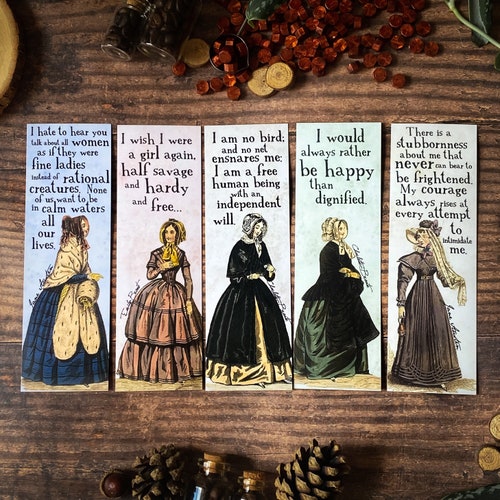 I hate to hear you
talk about all women
as if they were
fine ladies
instead of rational
creatures. None
of us want to be
in calm waters
all
our
lives.
Jane Austen
I wish I were
a girl again,
half savage
and hardy
and free...
I am no bird;
and no net
ensnares me;
I am a free
human being
with an
independent
will.
I would
always rather
be happy
than
dignified.
Charlotte Brontë
There is a
stubbornness
about me that
never can bear to
be frightened.
My courage
always rises at
every attempt
to
intimidate
me.
Jane Austen